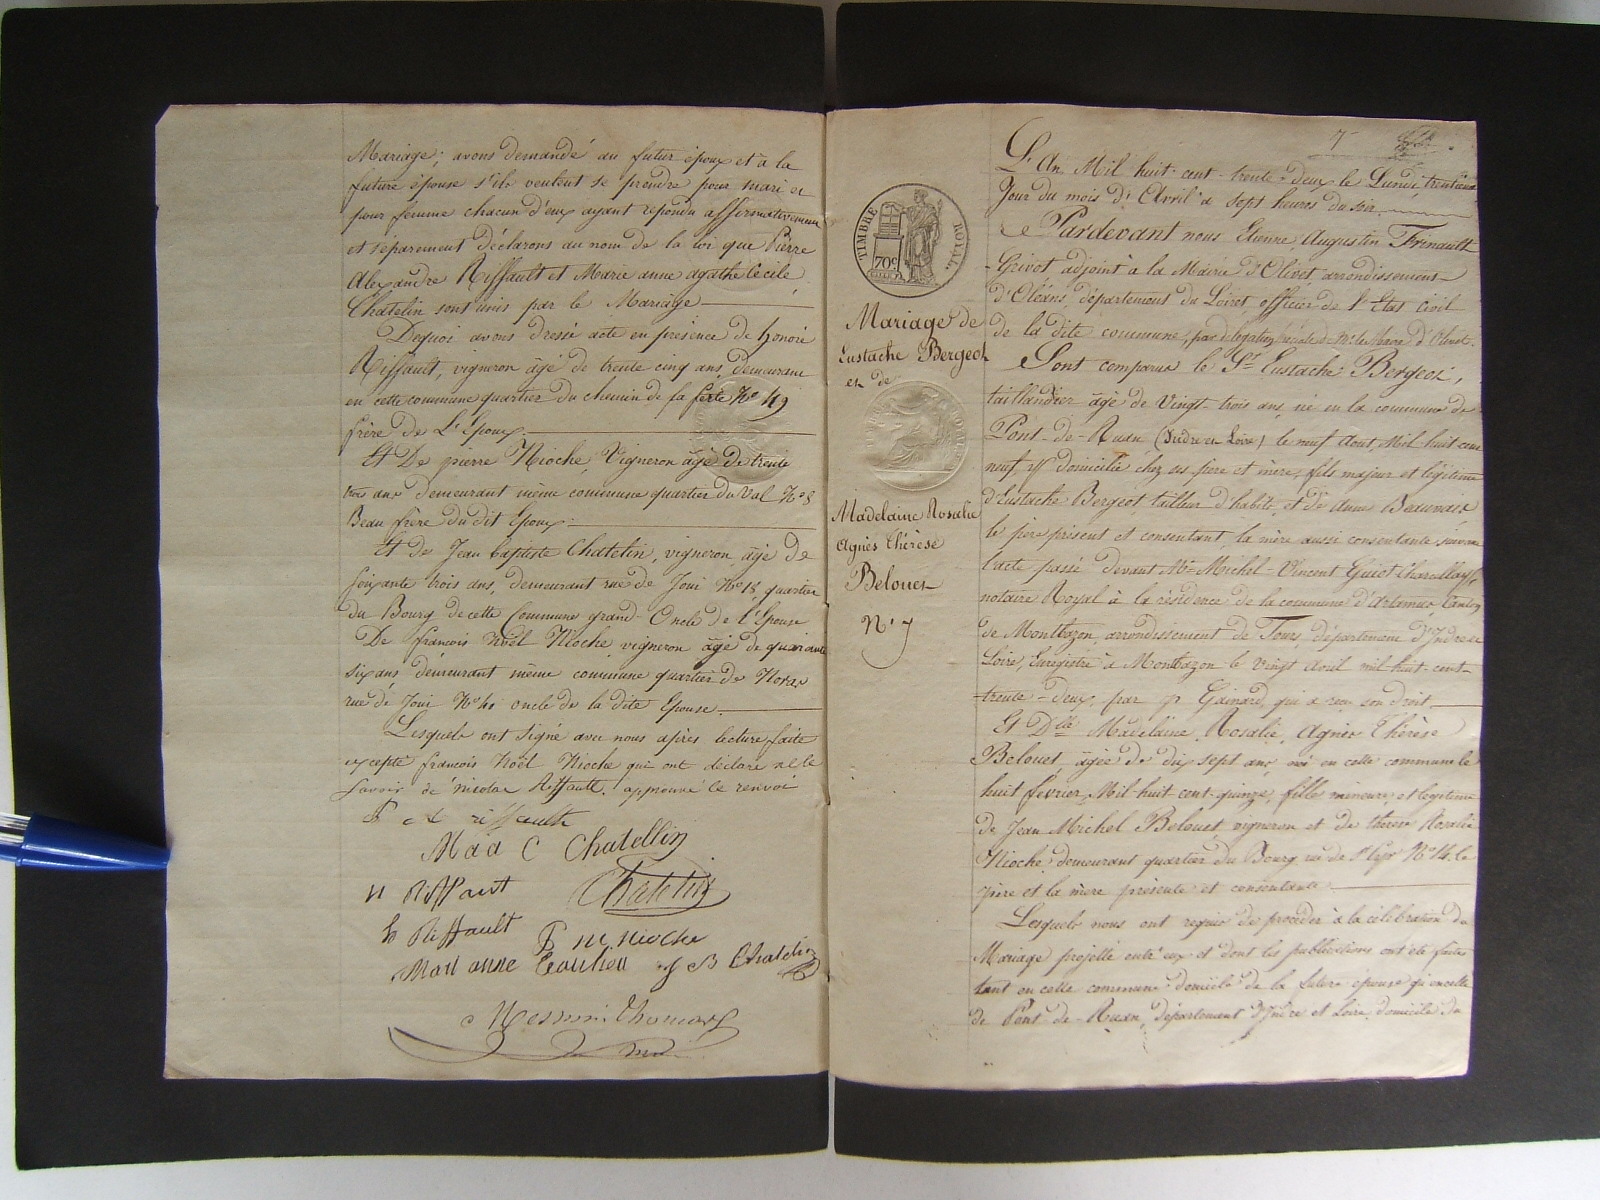 Mariage; avons demandé au futur époux et à la
future épouse s'ils veulent se prendre pour mari et
pour femme chacun d'eux ayant repondu affirmativement
et séparement déclarons au nom de la loi que Pierre
Alexandre Riffault et Marie anne agathe Cécile
Chatelin sont unis par le Mariage
Dequoi avons dressé acte en presence de honoré
Riffault, vigneron âgé de trente cinq ans, demeurant
en cette commune quartier du chemin de la ferté No 49
frère de L'Epoux
Et De pierre Nioche, Vigneron âgé de trente
trois ans demeurant même commune quartier du Val No 8
Beau frère du dit Epoux
Et de Jean baptiste Chatelin, vigneron, âgé de
soixante trois ans, demeurant rue de Joui No 18 quartier
du Bourg de cette Commune grand-Oncle de l'Epouse
De françois Noël Nioche vigneron âgé de quarante
six ans demeurant même commune quartier de
rue de Joui No 40 oncle de la dite Epouse
Lesquels ont signé avec nous après lecture faite
excepté francois Noël Nioche qui ont déclaré ne le
savoir de nicolas Riffault. approuvé le renvoi
P A riffault
M a a C Chatellin
N Riffaut Chatelin
h Riffault P M Nioche
Mari anne J B Chatelin
Mesmin Thomas
7
TIMBRE ROYAL
70c
Mariage de
Eustache Bergeot
et de
Madelaine Rosalie
Agnès Thérèse
Belouet
No 7
L'An Mil huit cent trente-deux le Lundi trentième
Jour du mois d'Avril à sept heures du soir
Pardevant nous Etienne Augustin Frinault
Grivot adjoint à la Mairie d'Olivet arrondissement
d'Orléans, département du Loiret, officier de l'Etat Civil
de la dite commune, par délégation spéciale de Mr le Maire d'Olivet.
Sont comparus le Sr Eustache Bergeot,
taillandier âgé de Vingt-trois ans, né en la commune de
Pont-de-Ruan (Indre et Loire) le neuf Aout, Mil huit cent
neuf, domicilié chez ses père et mère, fils majeur et légitime
d'Eustache Bergeot tailleur d'habits, et de Anne Beauvais
le père présent et consentant, la mère aussi consentante suivant
l'acte passé devant Me Michel-Vincent Guiot
notaire Royal à la résidence de la commune d'Artannes Canton
de Montbazon, arrondissement de Tours, département d'Indre et
Loire, Enregistré à Montbazon le vingt avril mil huit cent
trente-deux, par qui a reçu son droit
Et Dlle Madelaine, Rosalie, Agnès Thérèse
Belouet, âgée de dix sept ans, née en cette commune le
huit février, Mil huit cent quinze, fille mineure et légitime
de Jean Michel Belouet, vigneron et de thérèse Rosalie
Nioche, demeurant quartier du Bourg, rue de St Cyr No 14. le
père et la mère présents et consentants
Lesquels nous ont requis de procéder à la célébration du
Mariage projetté entr'eux et dont les publications ont été faites
tant en cette commune domicile de la future épouse qu'en celle
de Pont-de-Ruan, département d'Indre et Loire, domicile du